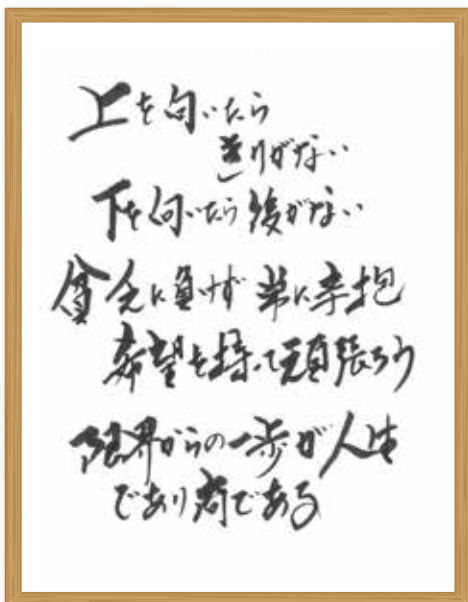 上を向いたら
きりがない
下を向いたら後がない
貧乏に負けず常に辛抱
希望を持って頑張ろう
限界からの一歩が人生
であり商である